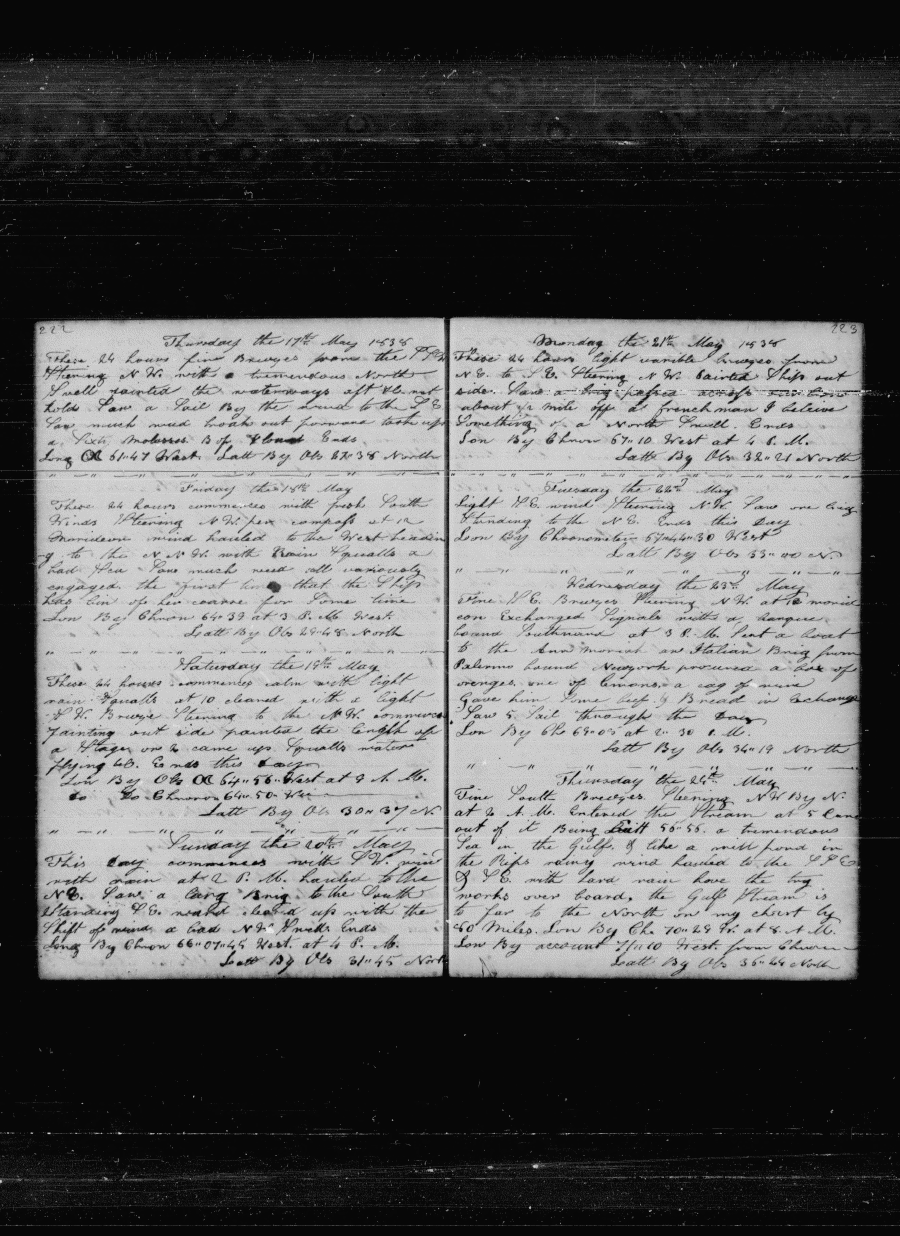 222
Thursday the 17th May 1838
These 24 hours fine Breezes from the
Steering N.W. with a tremendous North
Swell painted the waterways aft
holds Saw a Sail By the wind to the S.E.
Saw much weed broke out forward took up
a Molasses B of Ends
Long 61"47 West. Latt By Obs 27"38 North
Friday the 18th May
These 24 hours commences with fresh South
Winds Steering N.W. per compass at 12
Meridian wind hauled to the West headin
-g to the N.N.W. with Rain Squalls a
bad Sea Saw much weed all variously
engaged the first time that the Ship
has bin of her coarse for Some time
Lon By Chron 64"39 at 3 P.M. West.
Latt By Obs 29"48 North
Saturday the 19th May
These 24 hours commences calm with light
rain Squalls at 10 cleared with a light
S.W. Breeze Steering to the N.W. commence
painting out side painted the length of
a Stage on & came up. Squalls water
flying &c. Ends this day
Lon By Obs 64"56 West at 9 A.M.
do Do Chron 64"50
Latt By Obs 30"37 N
Sunday the 20th May
This day commences with S.W. wind
with rain at 2 P.M. hauled to the
N.E. Saw a larg Brig to the South
Standing S.E. ward cleard up with the
Shift of wind, a bad N.W. Swell Ends
Long By Chron 66"07"45 West. at 4 P.M.
Latt By Obs 31"45 North
223
Monday the 21st May 1838
These 24 hours light varible breezes from
N.E. to S.E. Steering N.W. Painted Ships out
side. Saw a brig passed across
about 1/2 mile off a frenchman I beleive
Something of a North Swell. Ends
Lon By Chron 67"10 West at 4 P.M.
Latt By Obs 32"21 North
Tuesday the 22d May
Light S.E. wind Steering N.W. Saw one brig
Standing to the N.E. Ends this Day
Lon By Chronometer 67"44"30 West
Latt By Obs 33"00 N.
Wednesday the 23d May
Fine S.E. Breezes Steering N.W. at merid
ean Exchanged Signals with a barque
bound Southward at 3 P.M. Sent a boat
to the Ann an Italian Brig from
Palermo bound Newyork procured a box of
orenges. one of lemons. a cag of wine
Gave him Some beef & Bread in Exchange
Saw 5 Sail through the Day
Lon By Chr 69"05 at 2"30 P.M.
Latt By Obs 34"19 North
Thursday the 24th May
Fine South Breezes Steering N.W. By N.
at 2 A.M. Entered the Stream at 5 Came
out of it Being Latt a tremendous
Sea in the Gulf. & like a mill pond in
the Rips raing wind hauled to the S.S.E.
& S.E. with hard rain hove the try
works over board, the Gulf Stream is
to far to the North on my chart by
60 Miles. Lon By Chr 70"29 W. at 8 A.M.
Lon By account 71"10 West from Chron
Latt By Obs 36"24 North